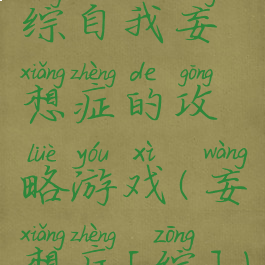 综自我妄
xiǎng zhèng de gōng
想症的攻
lüè yóu xì wàng
略游戏(妄
xiǎng zhèng zōng
想症[综])